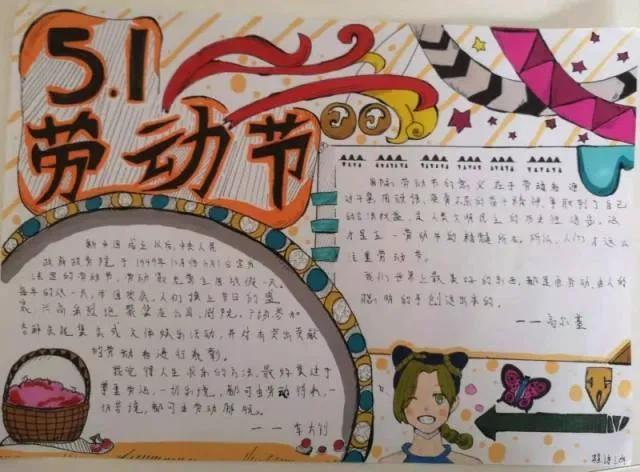 5.1
劳动节
J J
新中国成立以后,中央人民
政府政务院于1949年12月23日宣布
法定的劳动节,劳动最光荣主国放假一天。
每年的这一天,中国类族,人们换上节日的盛
装,兴高采烈地聚集在公园,剧院,广场参加
各种庆祝集会或文体娱乐活动,并对有突出贡献
的劳动者进行表彰。
我觉得人生求乐的方法,最好莫过于
尊重劳动,一切乐境,都可由劳动得来,一
切苦境,都可由劳动解脱。
——李大钊
国际劳动节的意义在于劳动者通
过斗争,用顽强、英勇不屈的奋斗精神,争取到了自己
的合法权益,是人类文明民主的历史性进步,这
才是五一劳动节的精髓所在。所以,人们才这么
注重劳动节。
我们世界上最美好的东西,都是由劳动、由人的
聪明的手创造出来的。
——高尔基